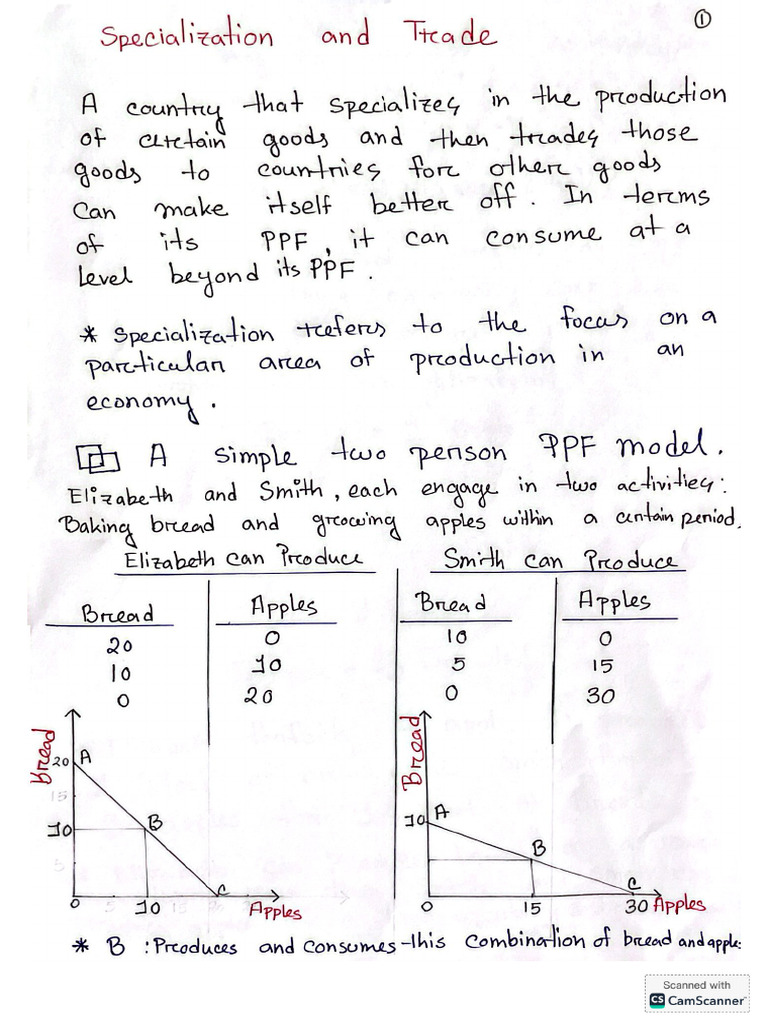 ①
Specialization and Trade
A country that specializes in the production
of certain goods and then trades those
goods to countries for other goods
can make itself better off. In terms
of its PPF, it can consume at a
level beyond its PPF.
* Specialization refers to the focus on a
particular area of production in an
economy.
A simple two person PPF model.
Elizabeth and Smith, each engage in two activities:
Baking bread and growing apples within a certain period.
Elizabeth can Produce
Bread Apples
20 0
10 10
0 20
Smith can Produce
Bread Apples
10 0
5 15
0 30
Bread
20 A
15
10 B
5
C
0 10 Apples
Bread
10 A
B
C
0 15 30 Apples
* B : Produces and consumes this combination of bread and apple:
Scanned with
CS CamScanner